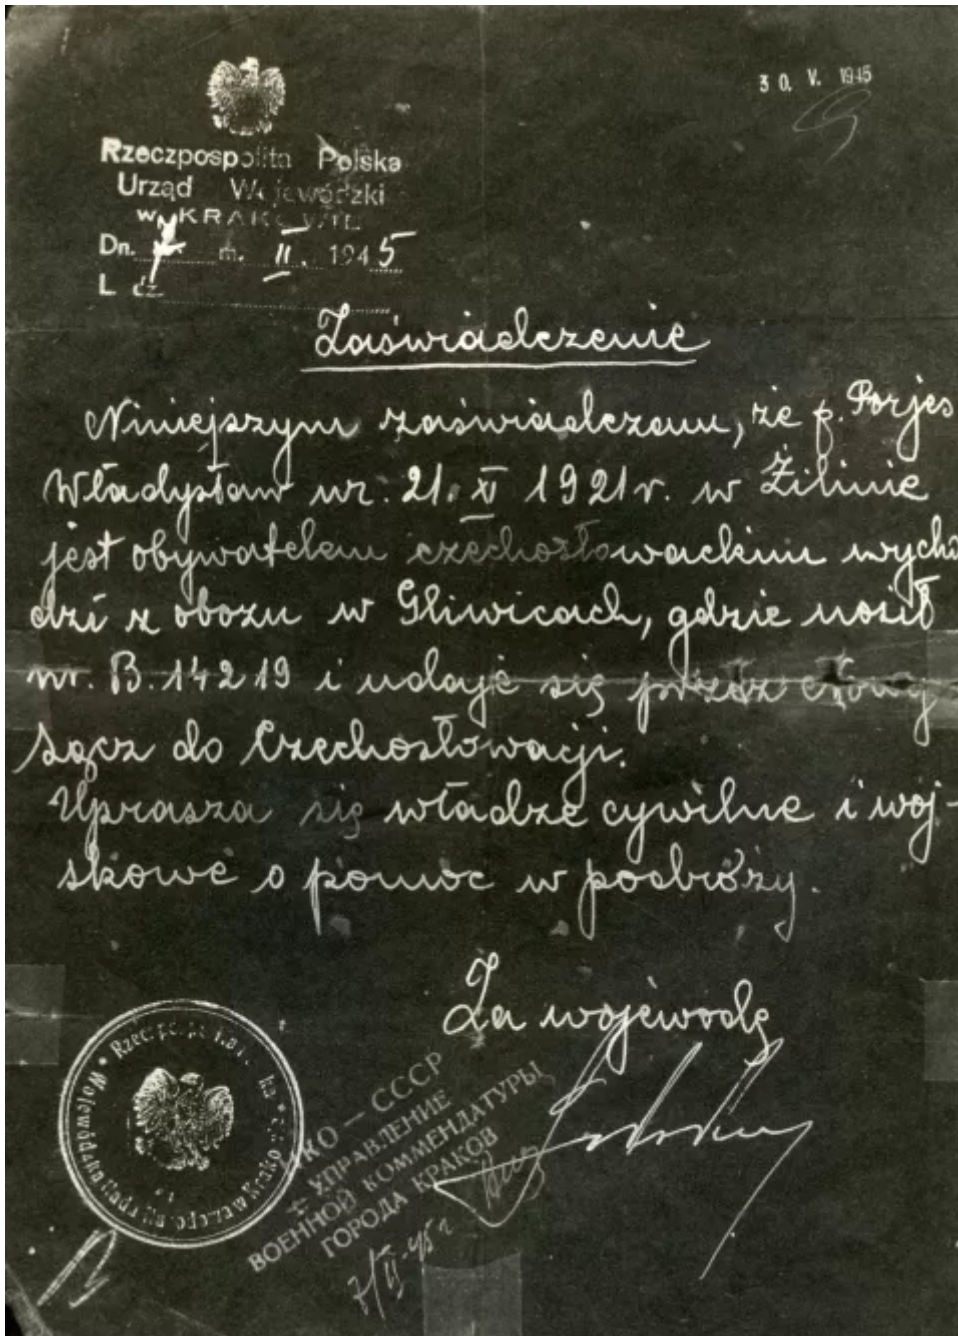 30. V. 1945
Rzeczpospolita Polska
Urząd Wojewódzki
w KRAKOWIE
Dn. m. II. 1945
L
Zaświadczenie
Niniejszym zaświadczam, że p. Porjes
Władysław ur. 21. XI 1921 r. w Żilinie
jest obywatelem czechosłowackim wycho
dzi z obozu w Gliwicach, gdzie nosił
nr. B. 14219 i udaje się przez Nowy
Sącz do Czechosłowacji.
Uprasza się władze cywilne i woj-
skowe o pomoc w podróży.
Za wojewodę
НКО — СССР
УПРАВЛЕНИЕ
ВОЕННОЙ КОММЕНДАТУРЫ
ГОРОДА КРАКОВ
7/II-45 г